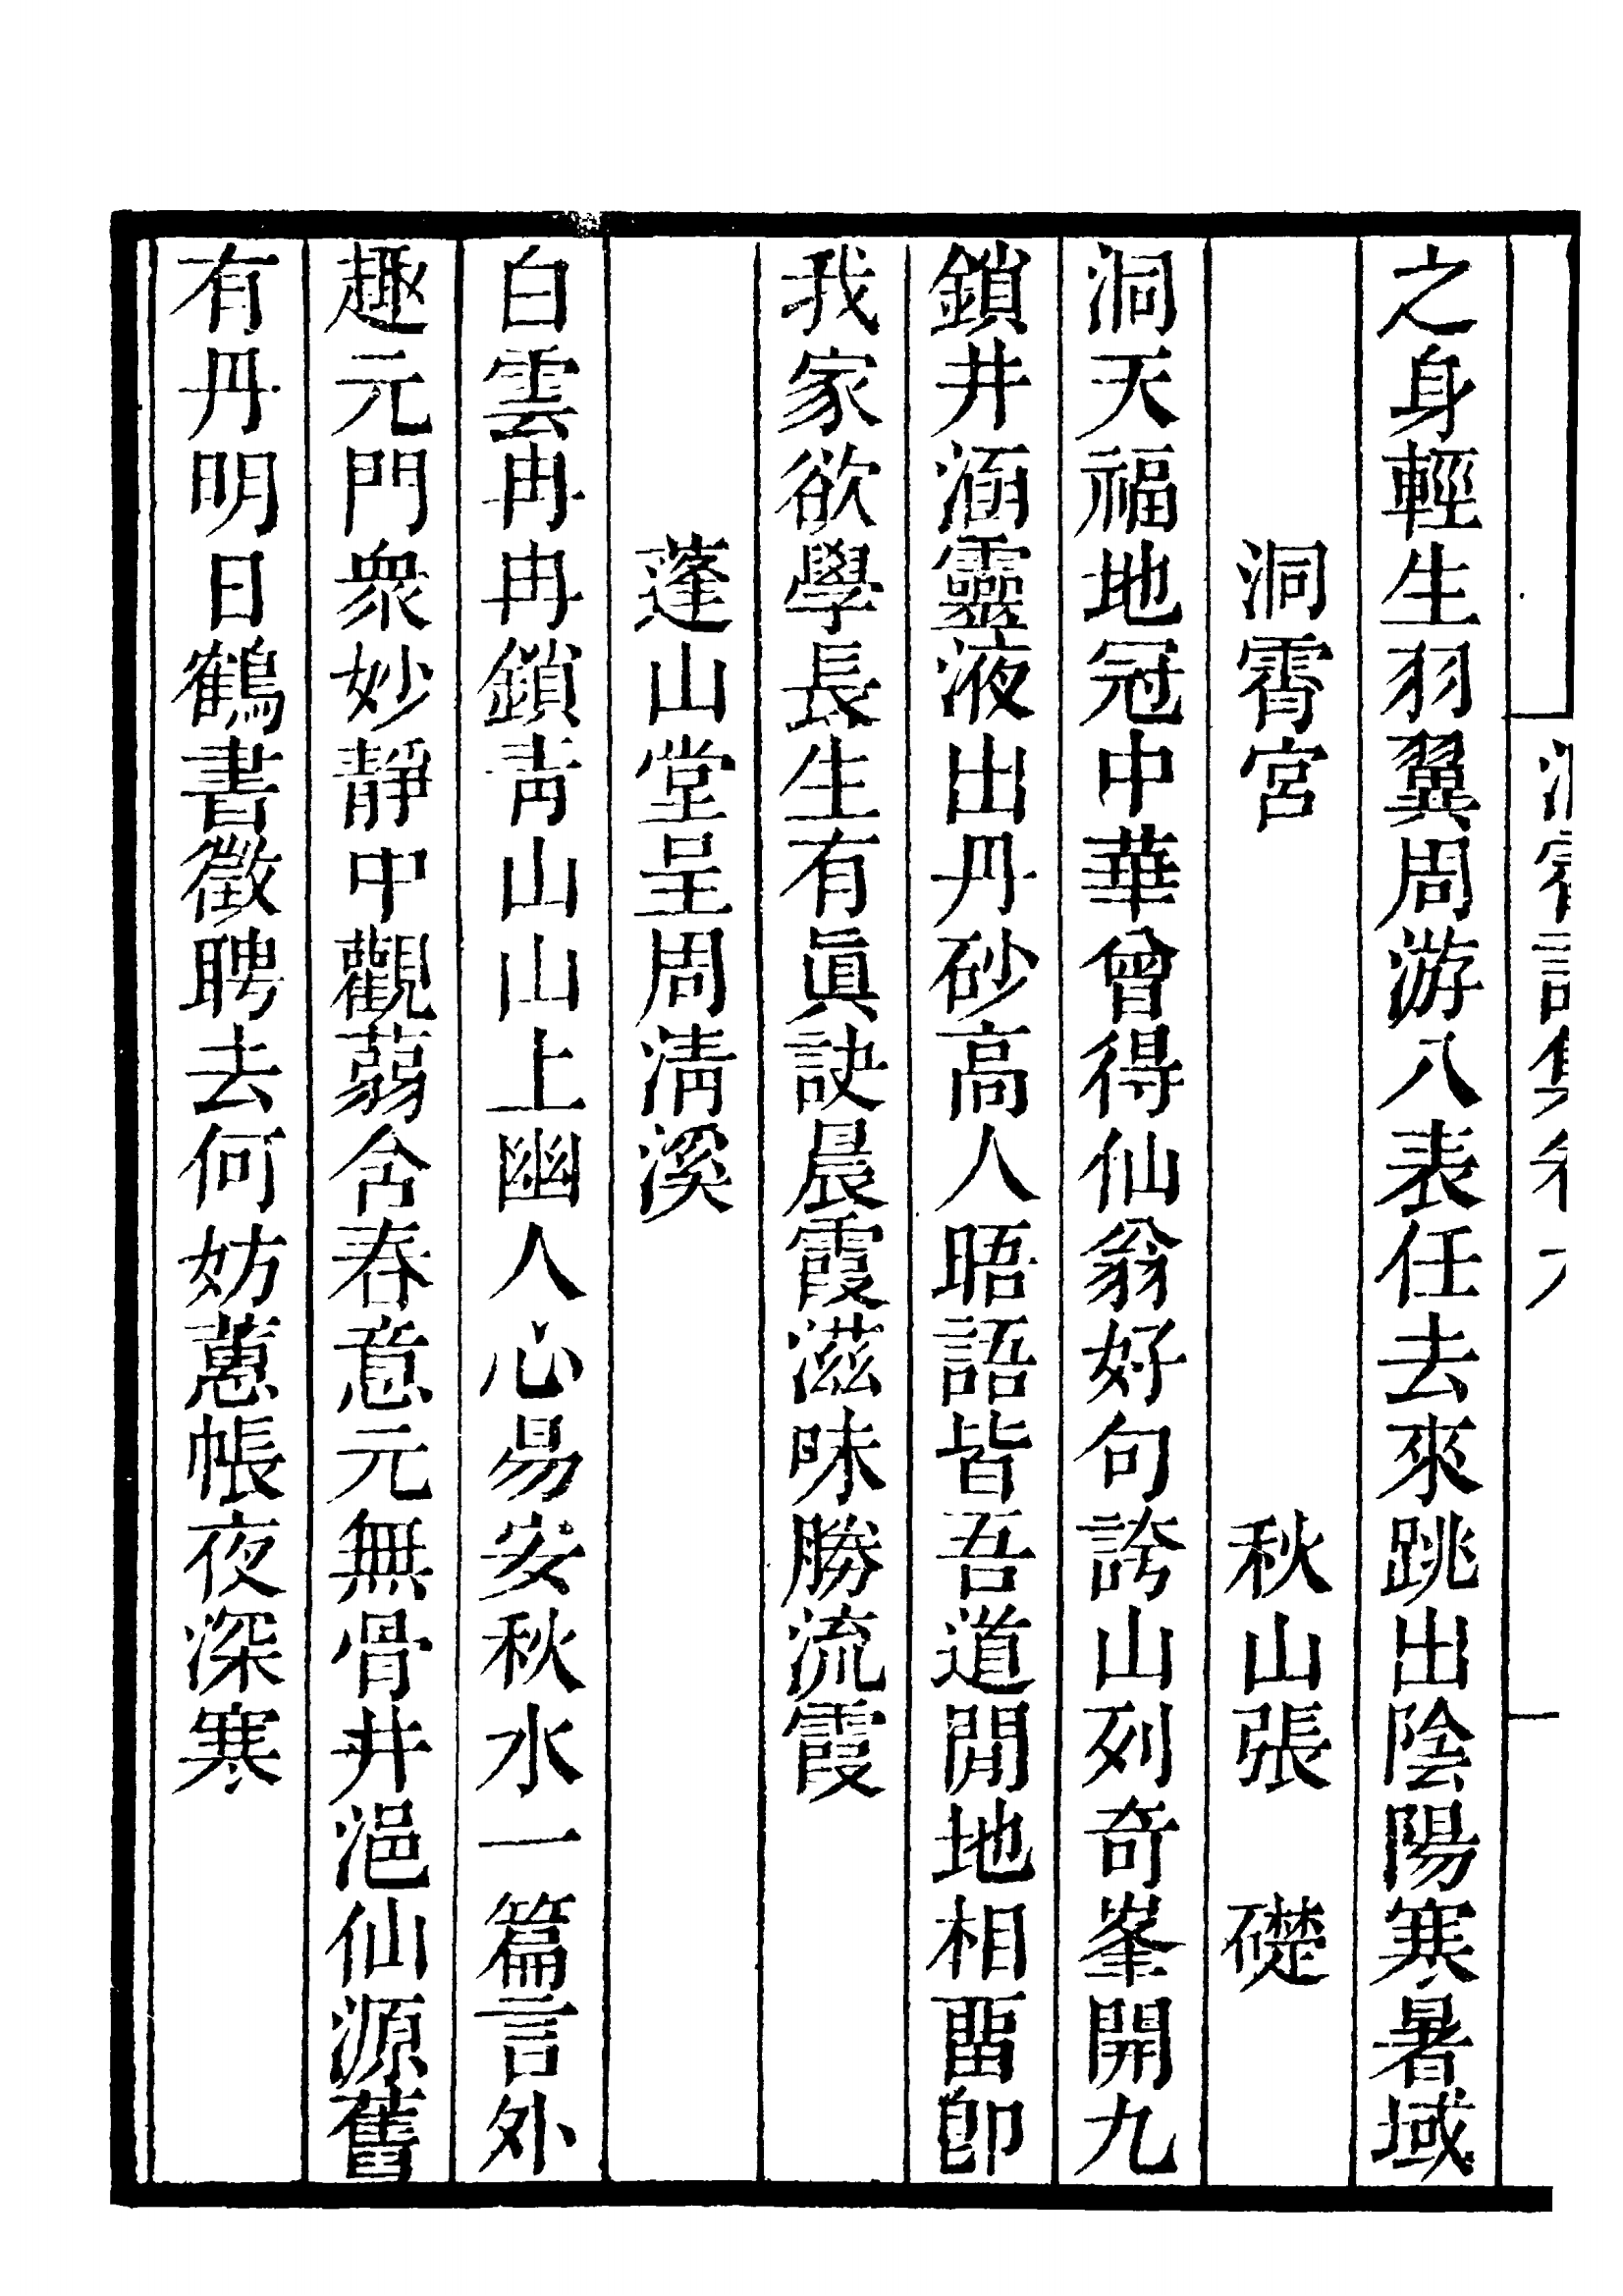 之身輕生羽翼周游八表任去來跳出陰陽寒暑域
洞霄宮 秋山張 礎
洞天福地冠中華曾得仙翁好句誇山列奇峯開九
鎖井涵靈液出丹砂高人晤語皆吾道閒地相畱卽
我家欲學長生有眞訣晨霞滋味勝流霞
蓬山堂呈周淸溪
白雲冉冉鎖靑山山上幽人心易安秋水一篇言外
趣元門衆妙靜中觀蒻含春意元無骨井浥仙源舊
有丹明日鶴書徵聘去何妨蕙帳夜深寒